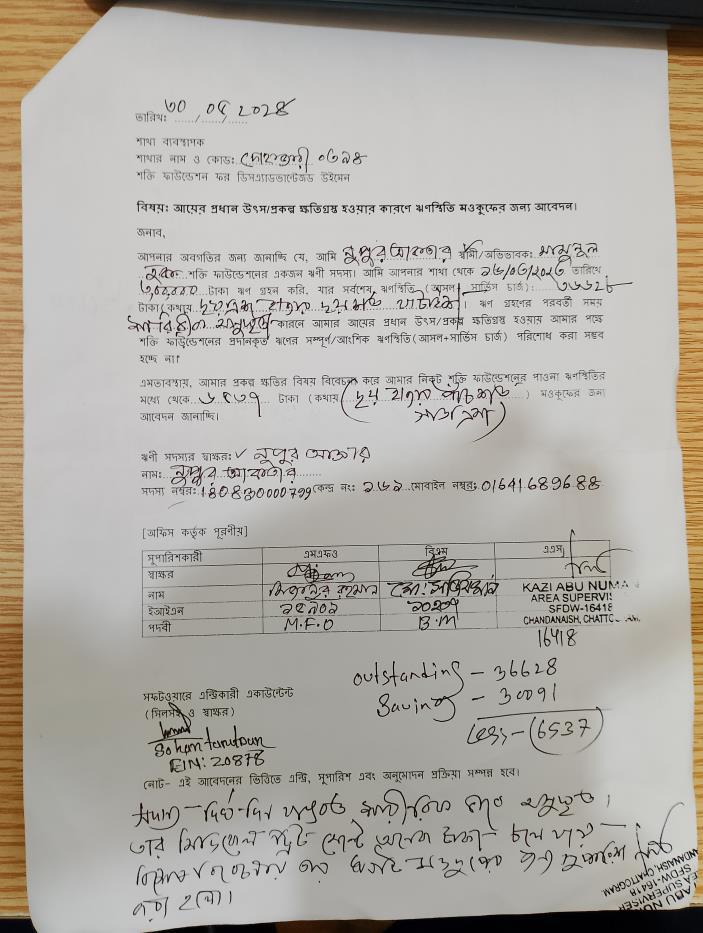 তারিখ: ৩০/০৫/2024
শাখা ব্যবস্থাপক
শাখার নাম ও কোড: দোহাজারী ০৬৯৪
শক্তি ফাউন্ডেশন ফর ডিসএ্যাডভান্টেজড উইমেন
বিষয়: আয়ের প্রধান উৎস/প্রকল্প ক্ষতিগ্রস্থ হওয়ার কারণে ঋণস্থিতি মওকুফের জন্য আবেদন।
জনাব,
আপনার অবগতির জন্য জানাচ্ছি যে, আমি নুপুর আকতার স্বামী/অভিভাবক: মামুনুল
হক শক্তি ফাউন্ডেশনের একজন ঋণী সদস্য। আমি আপনার শাখা থেকে তারিখে
টাকা ঋণ গ্রহণ করি, যার সর্বশেষ ঋণস্থিতি (আসল+সার্ভিস চার্জ): ৩৬৬২৮
টাকা (কথায় ) ঋণ গ্রহণের পরবর্তী সময়
শারিরীক অসুস্থতা কারনে আমার আয়ের প্রধান উৎস/প্রকল্প ক্ষতিগ্রস্থ হওয়ায় আমার পক্ষে
শক্তি ফাউন্ডেশনের প্রদানকৃত ঋণের সম্পূর্ণ/আংশিক ঋণস্থিতি(আসল+সার্ভিস চার্জ) পরিশোধ করা সম্ভব
হচ্ছে না।
এমতাবস্থায়, আমার প্রকল্প ক্ষতির বিষয় বিবেচনা করে আমার নিকট শক্তি ফাউন্ডেশনের পাওনা ঋণস্থিতির
মধ্যে থেকে ৬৫৩৭ টাকা (কথায় (ছয় হাজার পাঁচশত ) মওকুফের জন্য
আবেদন জানাচ্ছি।
ঋণী সদস্যর স্বাক্ষর: নুপুর আক্তার
নাম: নুপুর আকতার
সদস্য নম্বর: 180830000799 কেন্দ্র নং: ১৬৯ মোবাইল নম্বর: 01641689688
[অফিস কর্তৃক পূরণীয়]
সুপারিশকারী এমএফও বিএম এএস
স্বাক্ষর
নাম মিজানুর রহমান
KAZI ABU NUMA
ইআইএন ১৫৯০৯ ২০২০৭
AREA SUPERVIS
SFDW-16418
পদবী M.F.O B.M
CHANDANAISH, CHATTO
16418
outstanding - 36628
Saving - 30091
(6537)
সফটওয়ারে এন্ট্রিকারী একাউন্টেন্ট
(সিলসহ ও স্বাক্ষর)
EIN: 20878
নোট- এই আবেদনের ভিত্তিতে এন্ট্রি, সুপারিশ এবং অনুমোদন প্রক্রিয়া সম্পন্ন হবে।
সদস্য দীর্ঘ দিন যাবত শারীরিক ভাবে অসুস্থ।
তার টাকা চলে যায়
করা হলো।
ABU NU
EA SUPERVISER
SFDW-16418
ANDANAISH, CHATTOGRAM